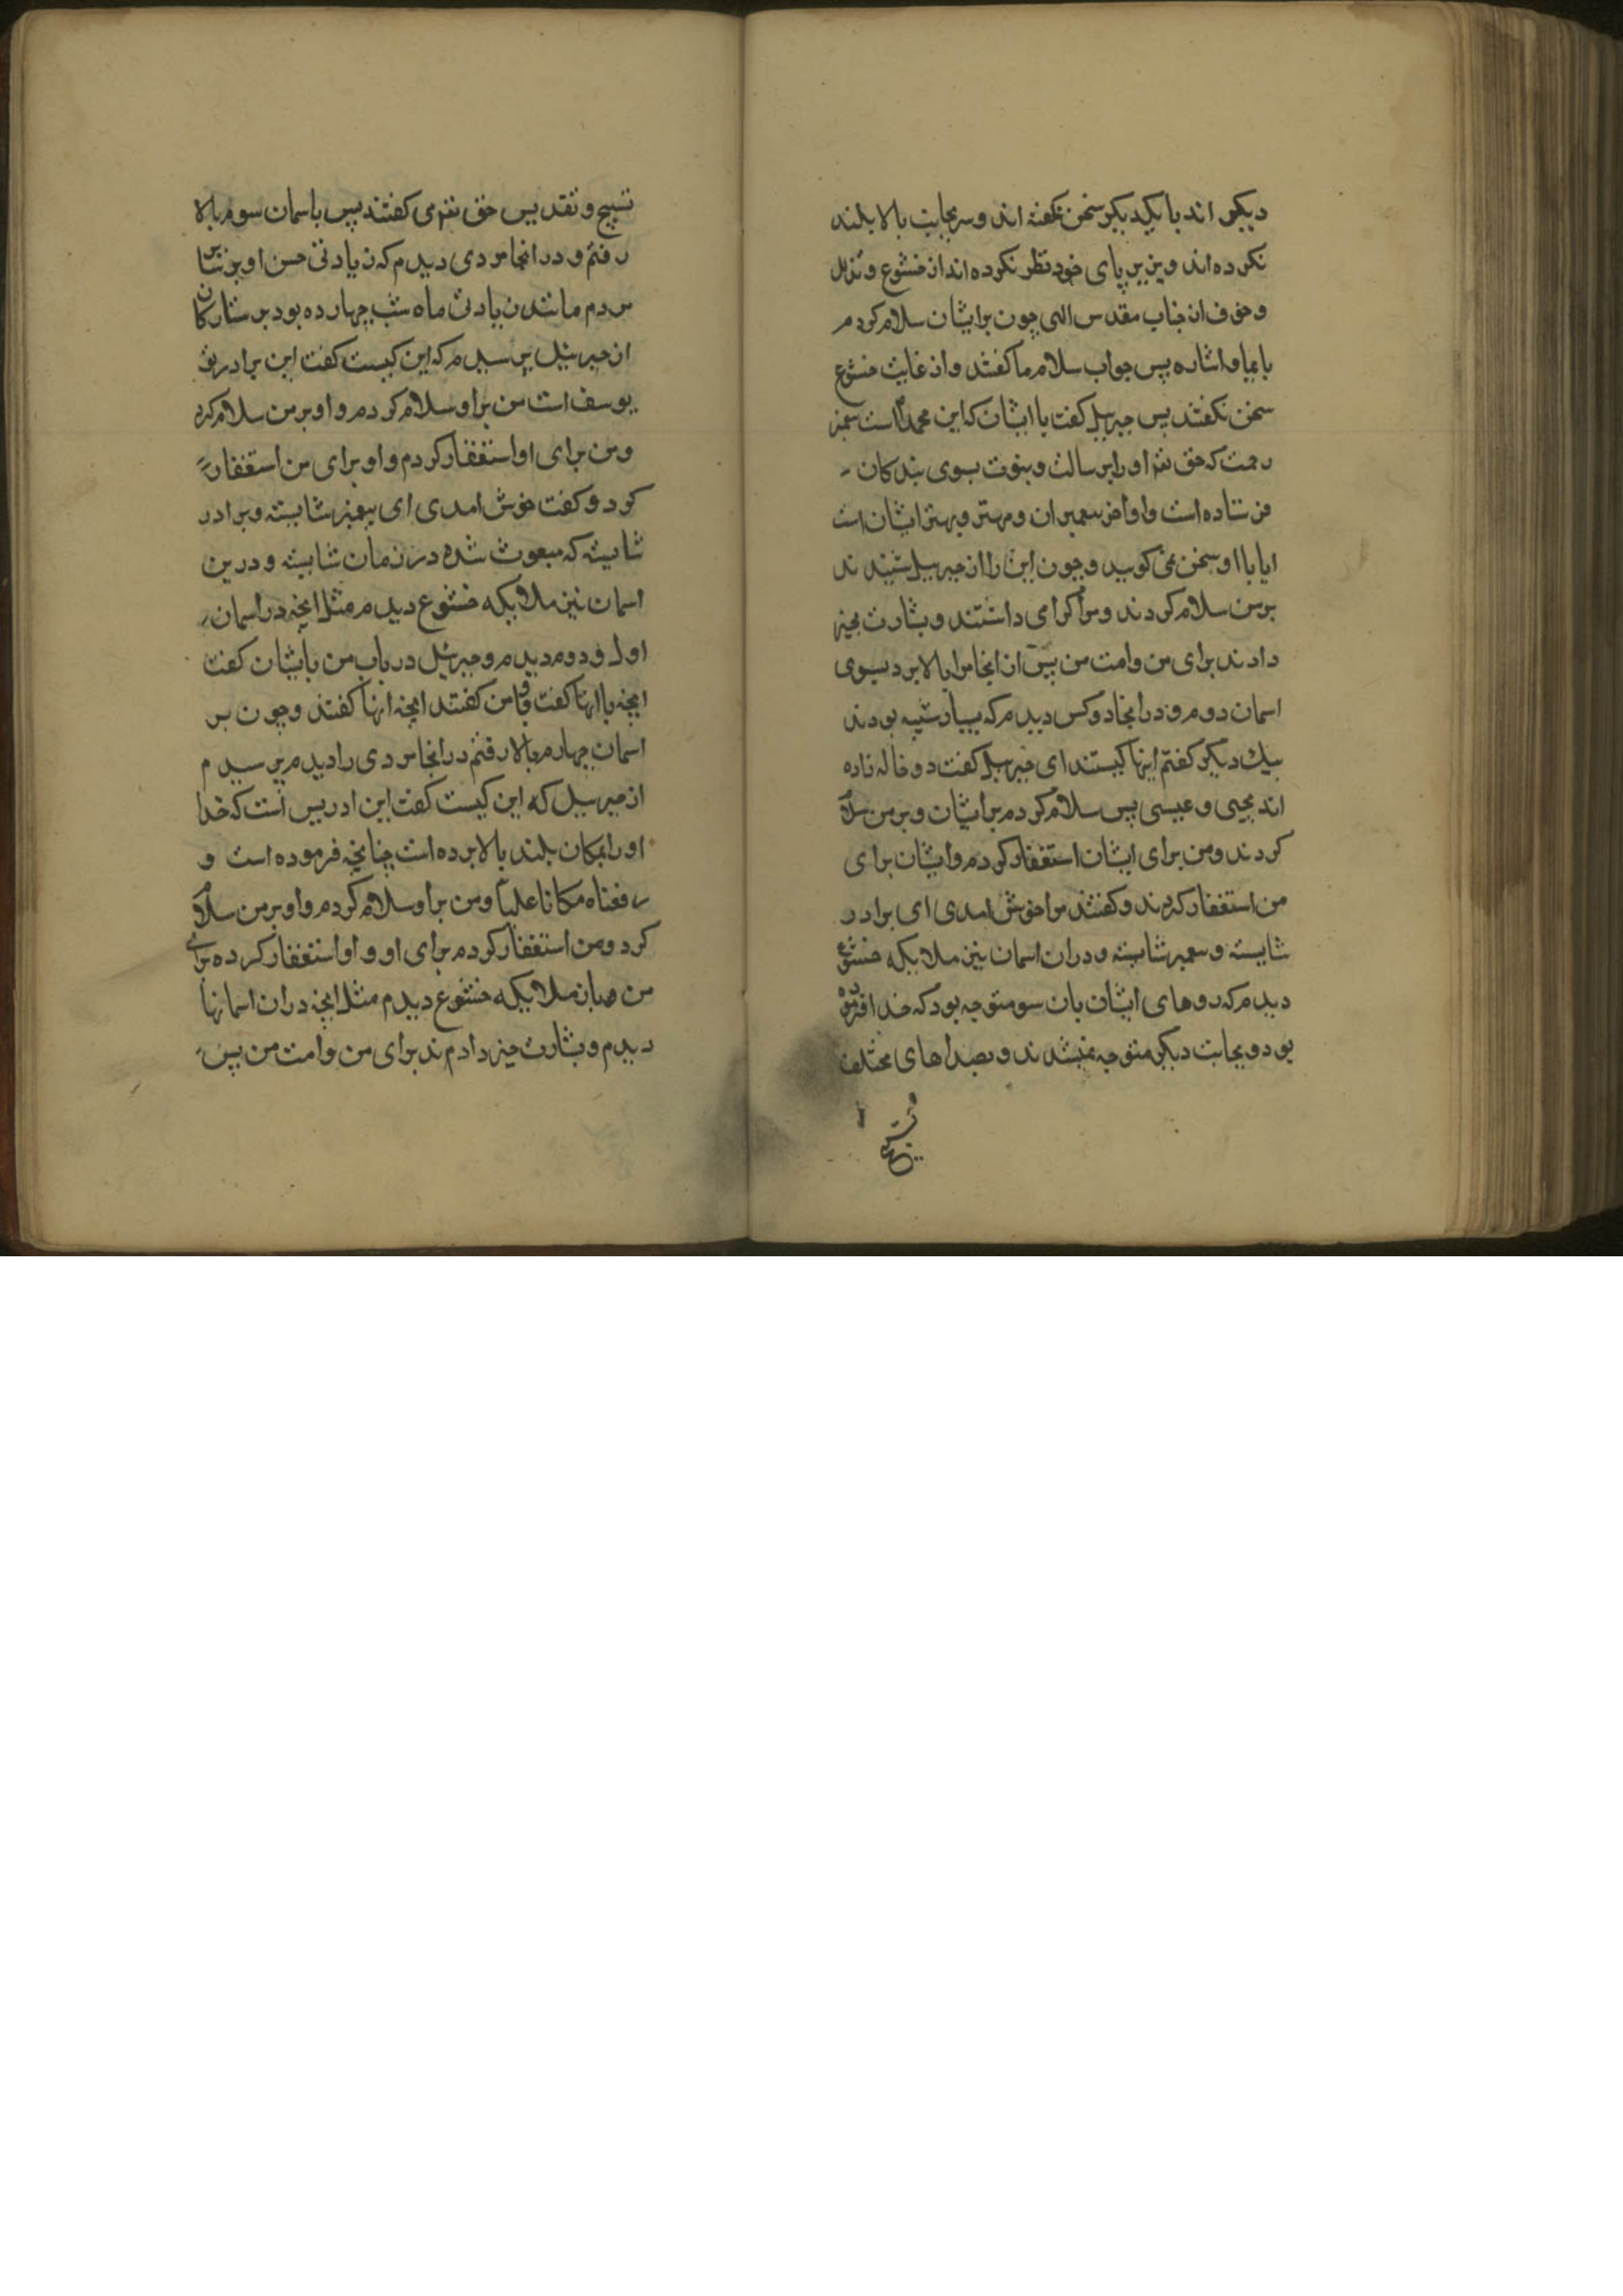 دیکر اند با یکدیکر سخن نکفته اند و سر بجانب بالا بلند
نکرده اند و بزیر پای خود نظر نکرده اند از خشوع و تذلل
و خوف از جناب مقدس الهی چون بر ایشان سلام کردم
بایما و اشاره پس جواب سلام ما کفتند و از غایت خشوع
سخن نکفتند پس جبرییل کفت با ایشان که این محمد است پیغمبر
رحمت که حق تعم او را برسالت و بنوت بسوی بندکان
فرستاده است و او آخر پیغمبران و مهتر و بهتر ایشان است
ایا با او سخن نمی کویید و چون این را از جبرییل شنیدند
بر من سلام کردند و مرا کرامی داشتند و بشارت بخیر
دادند برای من و امت من پس از انجا مرا بالا برد بسوی
اسمان دوم و در انجا دو کس دیدم که بسیار شبیه بودند
بیك دیکر کفتم اینها کیستند ای جبرییل کفت دو خاله زاده
اند یحیی و عیسی پس سلام کردم بر ایشان و بر من سلام
کردند و من برای ایشان استغفار کردم و ایشان برای
من استغفار کردند و کفتند مرا خوش امدی ای برادر
شایسته و پیغمبر شایسته و در ان اسمان نیز ملایکه خشوع
دیدم که روهای ایشان بان سو متوجه بود که خدا افریده
بود و بجانب دیکر متوجه نمیشدند و بصداهای مختلف
تسبیح
تسبیح و تقدیس حق تعم می کفتند پس باسمان سوم بالا
رفتم و در انجا مردی دیدم که زیادتی حسن او بر سایر
مردم مانند زیادتی ماه شب چهارده بود بر ستارکان
از جبرییل پرسیدم که این کیست کفت این برادر تو
یوسف است من بر او سلام کردم و او بر من سلام کرد
و من برای او استغفار کردم و او برای من استغفار
کرد و کفت خوش امدی ای پیغمبر شایسته و برادر
شایسته که مبعوث شده در زمان شایسته و درین
اسمان نیز ملایکه خشوع دیدم مثل انچه در اسمان
اول و دوم دیدم و جبرییل در باب من بایشان کفت
انچه با انها کفت و با من کفتند انچه انها کفتند و چون بر
اسمان چهارم بالا رفتم در انجا مردی را دیدم پرسیدم
از جبرییل که این کیست کفت این ادریس است که خدا
او را بمکان بلند بالا برده است چنانچه فرموده است و
رفعناه مکانا علیا و من بر او سلام کردم و او بر من سلام
کرد و من استغفار کردم برای او و او استغفار کرده برای
من و بان ملایکه خشوع دیدم مثل انچه در ان اسمانها
دیدم و بشارت خیر دادم ند برای من و امت من پس